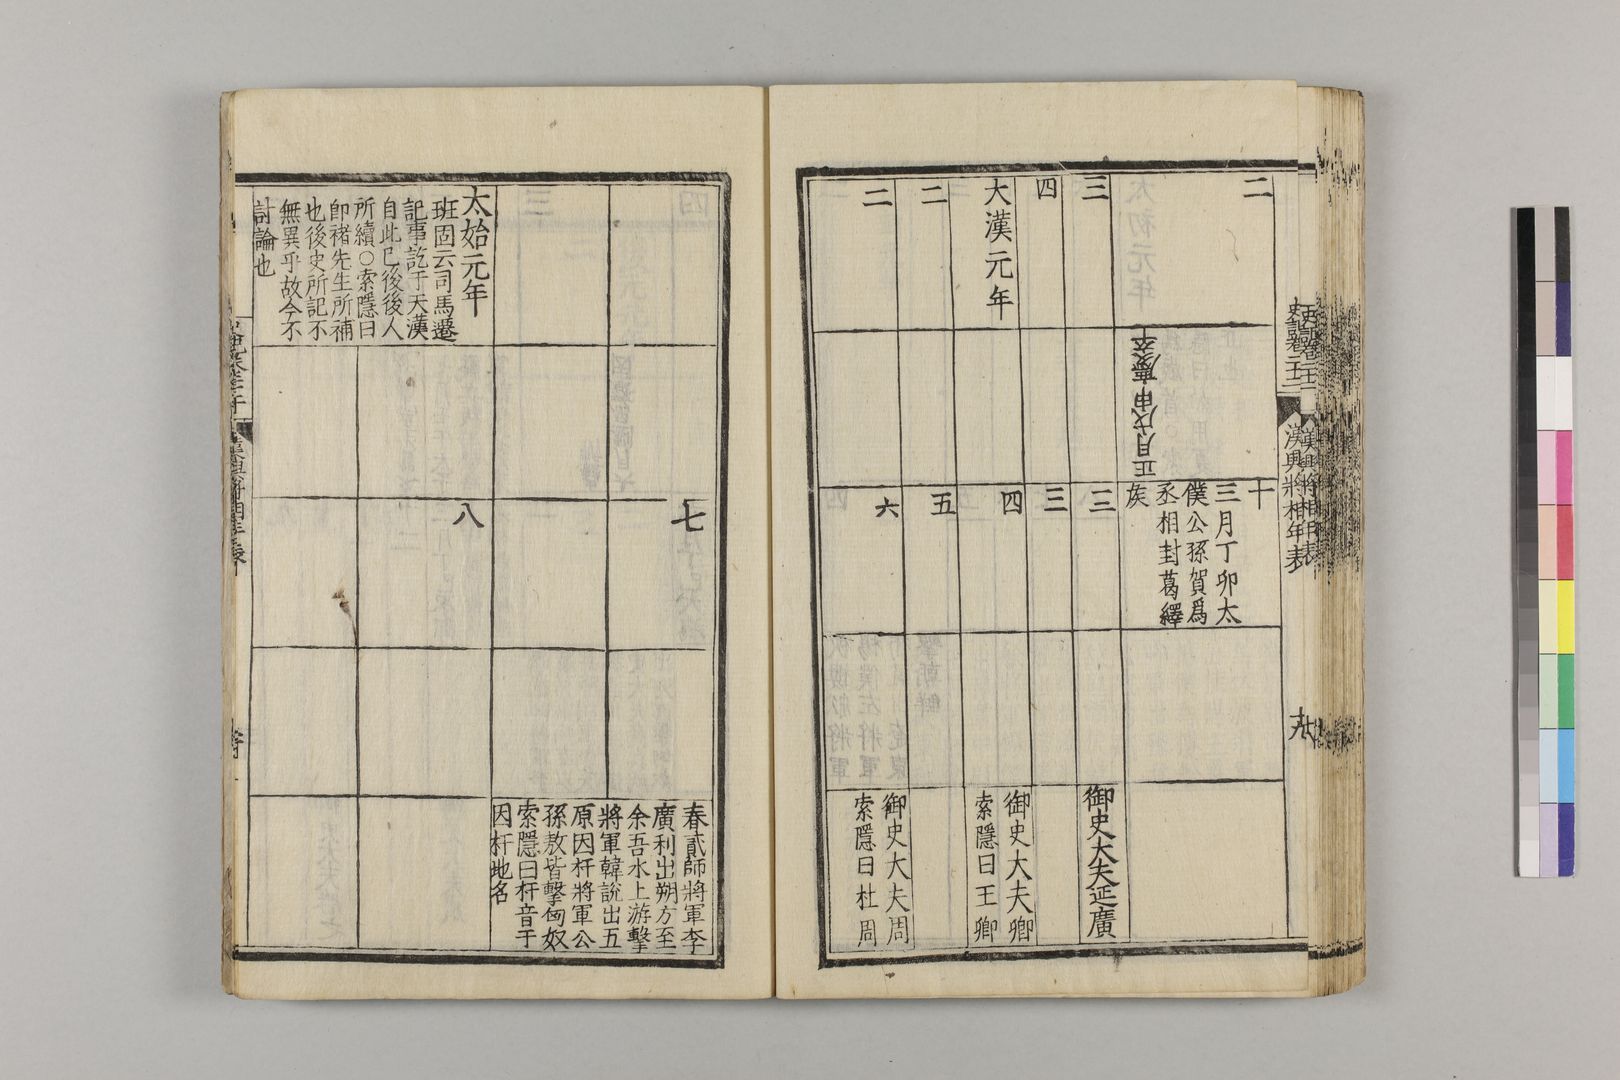 史記卷二十二
漢興將相年表
十九
二
正月戊申慶卒
十
三月丁卯太
僕公孫賀爲
丞相封葛繹
矦
三
三
御史大夫延廣
四
三
大漢元年
四
御史大夫卿
索隱曰王卿
二
五
二
六
御史大夫周
索隱曰杜周
三
七
春貳師將軍李
廣利出朔方至
余吾水上游擊
將軍韓說出五
原因杅將軍公
孫敖皆擊匈奴
索隱曰杅音于
因杅地名
太始元年
班固云司馬遷
記事訖于天漢
自此已後後人
所續○索隱曰
卽褚先生所補
也後史所記不
無異乎故今不
討論也
八